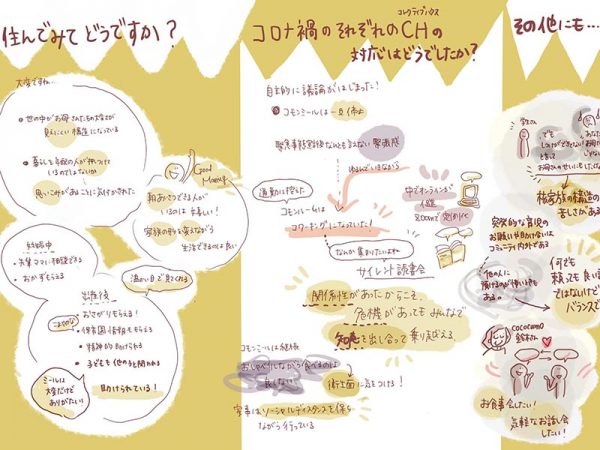 住んでみて どうですか？
大変ですね…
• 世の中がお母さんたちの大変さが
見えにくい構造になっている
• 暮らしを母親の人が押しつけて
いるのではないか
思いこみがあることに気付かされた
Good Morning
朝あいさつできる人が
いるのは嬉しい！
家族の形を変えながら
生活できるのは良い
妊娠中
• 先輩ママに相談できる
• おかずもらえる
温かい目で見てくれる
出産後
おさがりもらえる！
• 保育園情報ももらえる
• 精神的に助けられる
• 子どもも他の子と関われる
ミールは
大変だけど
ありがたい！
助けられている！
コロナ禍のそれぞれのCHの
コレクティブハウス
対応はどうでしたか？
自主的に議論がはじまった！
コモンミールは一旦休止
緊急事態宣言後なんとも言えない緊張感
通勤に控えた
コモンルームは
コワーキングになっていた！
中でオンラインが
なんか集まりたいよね
サイレント読書会
関係性があったからこそ、
危機があってもみんなで
知恵を出し合って乗り越える
コモンミールは継続
おしゃべりしながら食べるのは
良くない
衛生面に気をつける！
家事はソーシャルディスタンスを保ち
ながら行っている
その他にも…
核家族の構造の
苦しさがある
突発的な育児の
お願いも助け合いは
コミュニティ内である
他の人に
預けるのが怖い時も
ある。
何でも
頼って良い訳
ではないけど
バランスで
cococomo
鈴木さん
お食事会したい！
気軽なお話し会
したい！